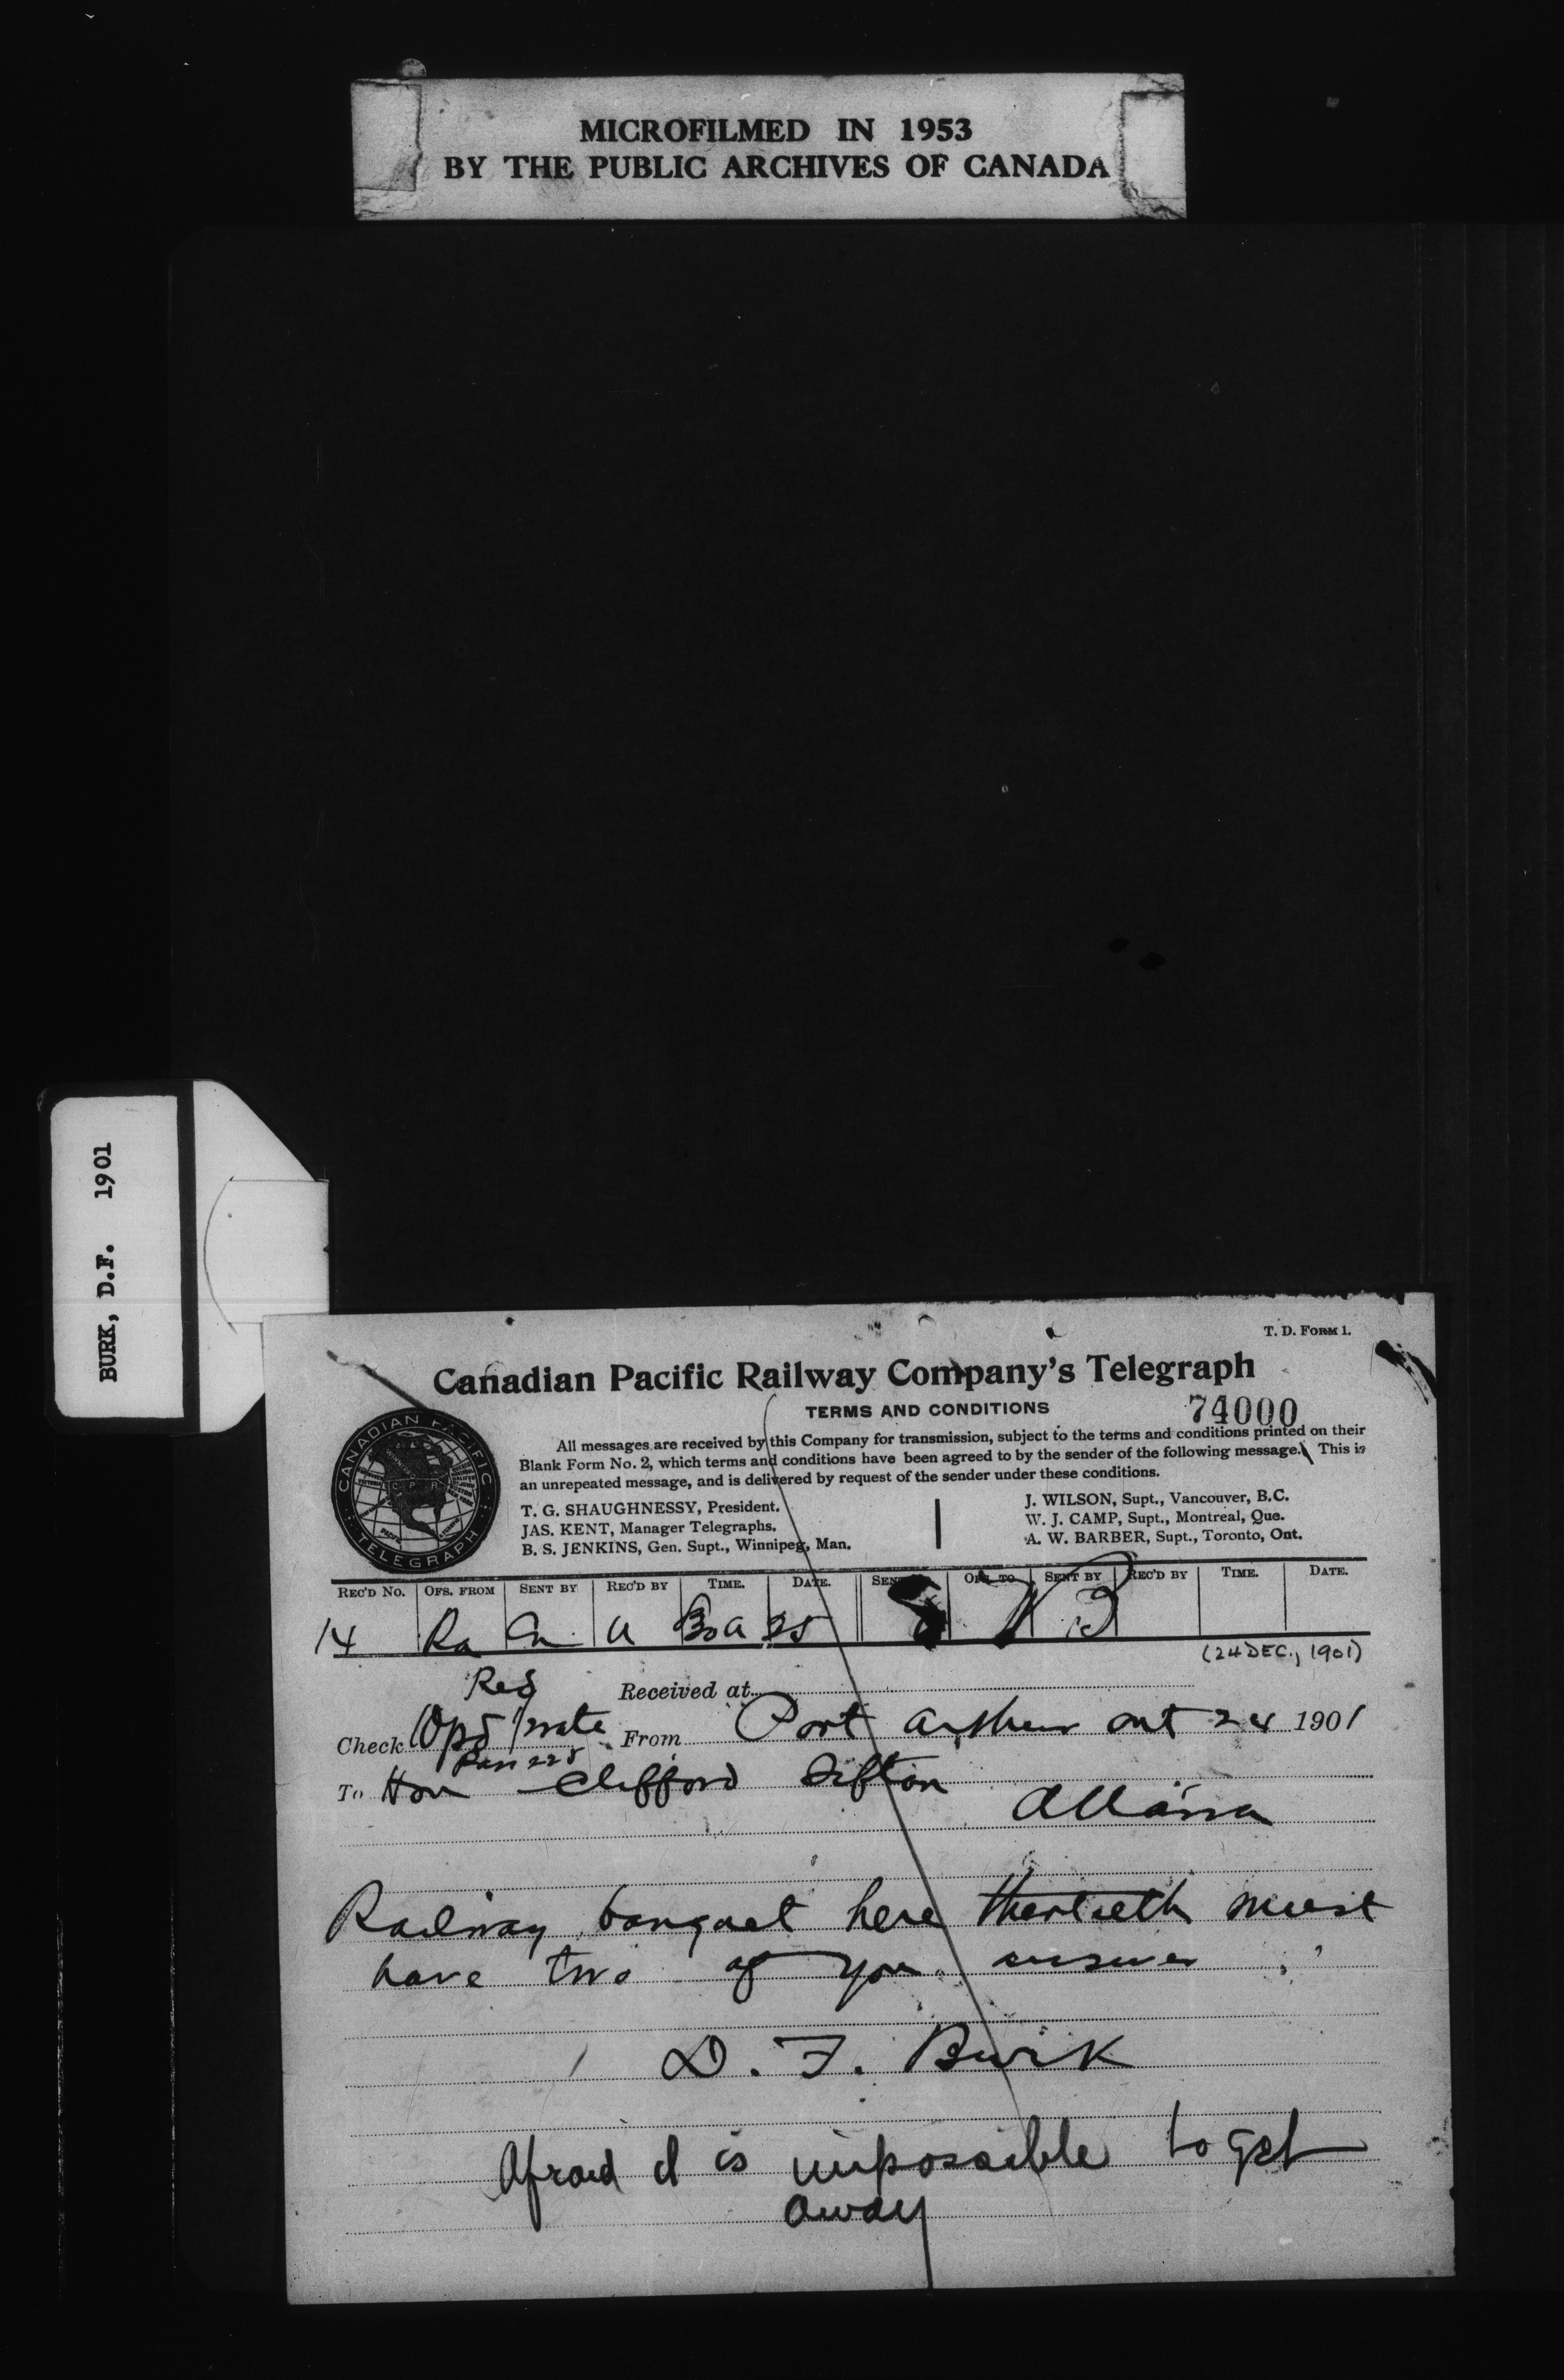 MICROFILMED IN 1953
BY THE PUBLIC ARCHIVES OF CANADA
BURK, D.F. 1901
T. D. FORM 1.
Canadian Pacific Railway Company's Telegraph
TERMS AND CONDITIONS
74000
All messages are received by this Company for transmission, subject to the terms and conditions printed on their
Blank Form No. 2, which terms and conditions have been agreed to by the sender of the following message. This is
an unrepeated message, and is delivered by request of the sender under these conditions.
CANADIAN PACIFIC
C.P.R.
TELEGRAPH
T. G. SHAUGHNESSY, President.
JAS. KENT, Manager Telegraphs.
B. S. JENKINS, Gen. Supt., Winnipeg, Man.
J. WILSON, Supt., Vancouver, B.C.
W. J. CAMP, Supt., Montreal, Que.
A. W. BARBER, Supt., Toronto, Ont.
REC'D No. OFS. FROM SENT BY REC'D BY TIME. DATE. SENT OFS. TO SENT BY REC'D BY TIME. DATE.
14 Ra a 25
(24 DEC., 1901)
Received at
Check rate From Port Arthur Ont 24 1901
To Hon Clifford Sifton
Ottawa
Railway banquet here thertieth must
have two of you answer
D. F. Burk
Afraid it is impossible to get
away